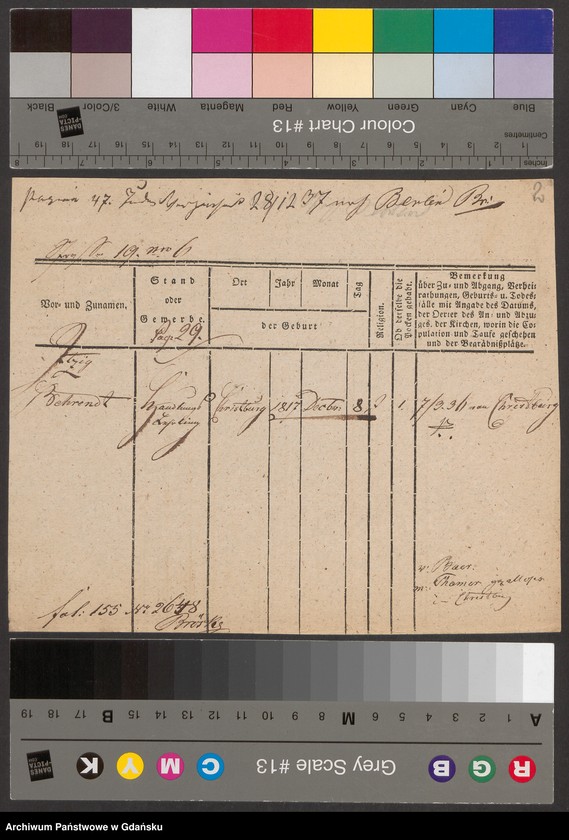 Blue Cyan Green Yellow Red Magenta White 3/Color Black
Colour Chart #13
DANES PICTA .COM
Centimetres
19 18 17 16 15 14 13 12 11 10 9 8 7 6 5 4 3 2 1
Inches
8 7 6 5 4 3 2 1
Pagina 47. 28/12 37 nach Berlin
2
19. nro 6
Vor- und Zunamen.
Stand
oder
Gewerbe.
Pag: 29.
Ort
Jahr
Monat
Tag
der Geburt
Religion.
Ob derselbe die
Pocken gehabt.
Bemerkung
über Zu- und Abgang, Verhei-
rathungen, Geburts- u. Todes-
fälle mit Angabe des Datums,
der Oerter des An- und Abzu-
ges, der Kirchen, worin die Co-
pulation und Taufe geschehen
und der Begräbnißplätze.
Itzig
Behrendt
Handlungs
Lehrling
Christburg
1817
Decbr
8
1.
7/3.36 von Christburg
v: Baer:
m: Thamer
Christburg
fol: 155 No 2648
A 1 2 3 4 5 6 M 8 9 10 11 12 13 14 15 B 17 18 19
R G B
Grey Scale #13
C M Y K
DANES PICTA .COM
Archiwum Państwowe w Gdańsku